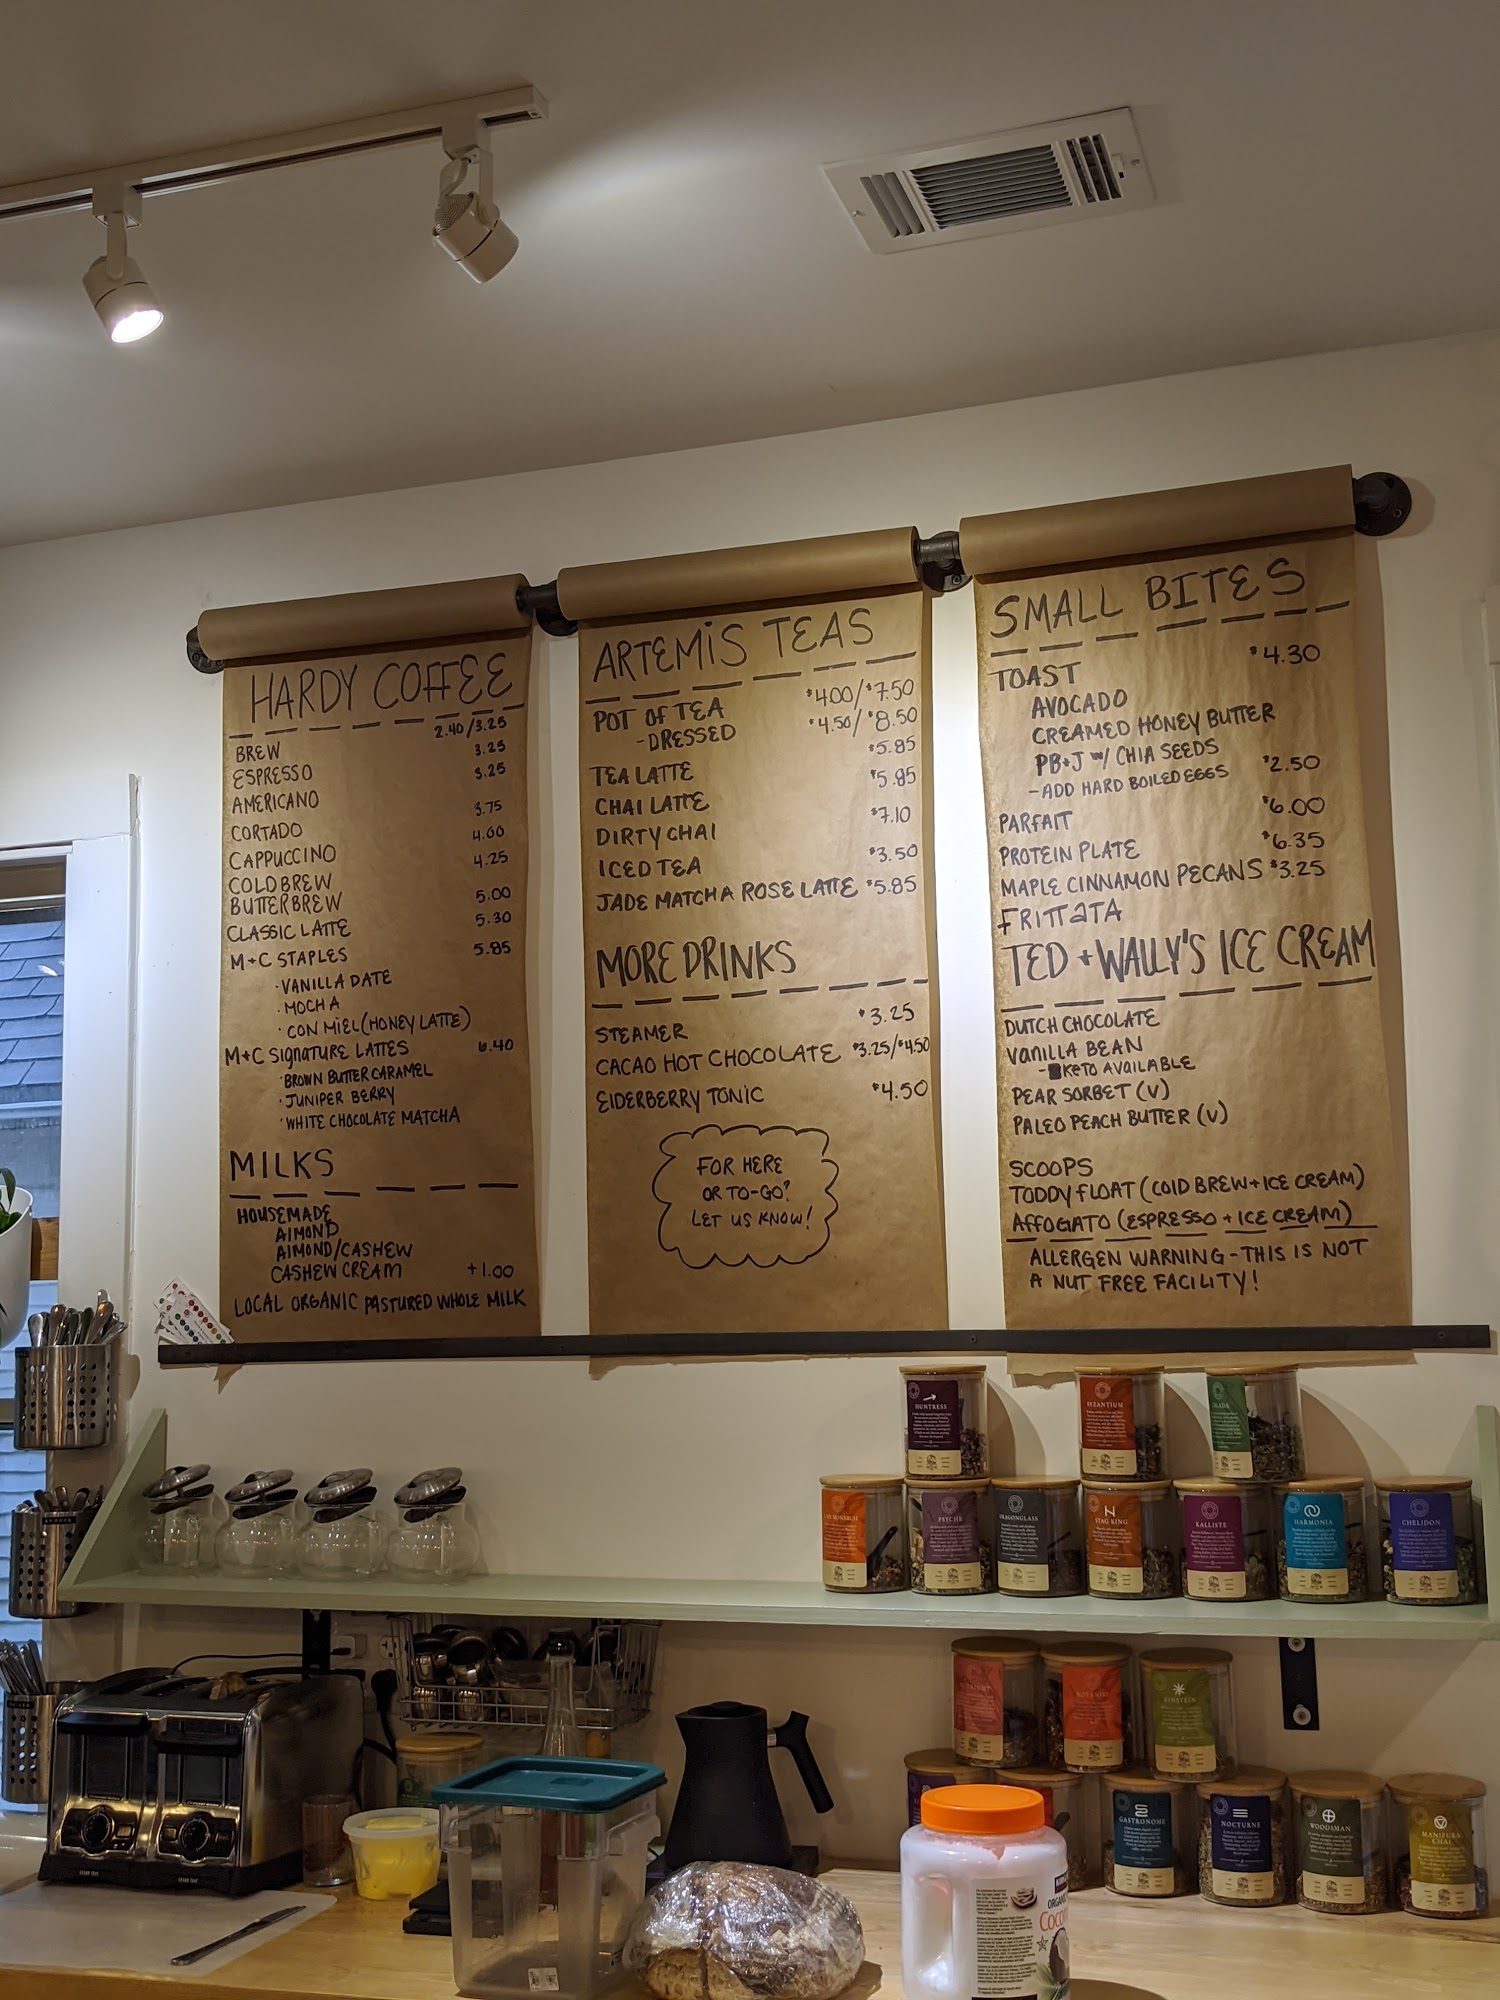 HARDY COFFEE
2.40/3.25
BREW
3.25
ESPRESSO
3.25
AMERICANO
3.75
CORTADO
4.00
CAPPUCCINO
4.25
COLD BREW
BUTTER BREW 5.00
CLASSIC LATTE 5.30
M+C STAPLES 5.85
· VANILLA DATE
· MOCHA
· CON MIEL (HONEY LATTE)
M+C SIGNATURE LATTES 6.40
· BROWN BUTTER CARAMEL
· JUNIPER BERRY
· WHITE CHOCOLATE MATCHA
MILKS
HOUSEMADE
ALMOND
ALMOND/CASHEW
CASHEW CREAM +1.00
LOCAL ORGANIC PASTURED WHOLE MILK
ARTEMIS TEAS
POT OF TEA $4.00/$7.50
-DRESSED $4.50/$8.50
$5.85
TEA LATTE
$5.85
CHAI LATTE
$7.10
DIRTY CHAI
ICED TEA $3.50
JADE MATCHA ROSE LATTE $5.85
MORE DRINKS
STEAMER $3.25
CACAO HOT CHOCOLATE $3.25/$4.50
ELDERBERRY TONIC $4.50
FOR HERE
OR TO-GO?
LET US KNOW!
SMALL BITES
TOAST $4.30
AVOCADO
CREAMED HONEY BUTTER
PB+J W/ CHIA SEEDS
-ADD HARD BOILED EGGS $2.50
PARFAIT $6.00
PROTEIN PLATE $6.35
MAPLE CINNAMON PECANS $3.25
FRITTATA
TED + WALLY'S ICE CREAM
DUTCH CHOCOLATE
VANILLA BEAN
- KETO AVAILABLE
PEAR SORBET (V)
PALEO PEACH BUTTER (V)
SCOOPS
TODDY FLOAT (COLD BREW + ICE CREAM)
AFFOGATO (ESPRESSO + ICE CREAM)
ALLERGEN WARNING - THIS IS NOT
A NUT FREE FACILITY!
HUNTRESS
BYZANTIUM
MONARCH
PSYCHE
DRAGONGLASS
STAG KING
KALLISTE
HARMONIA
CHELIDON
BOTANIST
EINSTEIN
GASTRONOME
NOCTURNE
WOODSMAN
MANJEURA
CHAI
ORGANIC